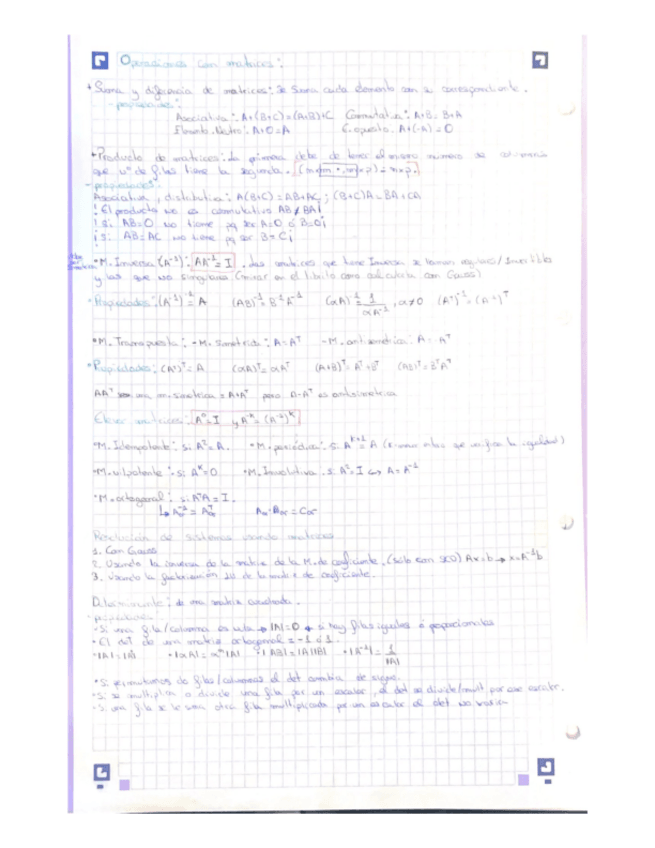 Operaciones con matrices:
• Suma y diferencia de matrices: Se suma cada elemento con su correspondiente.
- propiedades:
Asociativa: A+(B+C)=(A+B)+C Conmutativa: A+B=B+A
Elemento Neutro: A+0=A E. opuesto: A+(-A)=0
• Producto de matrices: La primera debe de tener el mismo numero de columnas
que nº de filas tiene la segunda. (m×m · m×p) = m×p.
- propiedades:
Asociativa, distributiva: A(B+C)=AB+AC; (B+C)A=BA+CA
¡El producto no es conmutativo AB≠BA!
¡Si AB=0 no tiene pq ser A=0 ó B=0!
¡Si AB=AC no tiene pq ser B=C!
• M. Inversa (A⁻¹): AA⁻¹=I. Las matrices que tiene inversa se llaman regulares/Invertibles
y las que no singulares (mirar en el librito como calcularla con Gauss)
• Propiedades: (A⁻¹)⁻¹=A (AB)⁻¹=B⁻¹A⁻¹ (αA)⁻¹=1/αA⁻¹, α≠0 (Aᵀ)⁻¹=(A⁻¹)ᵀ
• M. Transpuesta: - M. simetrica: A=Aᵀ - M. antisimetrica: A=-Aᵀ
• Propiedades: (Aᵀ)ᵀ=A (αA)ᵀ=αAᵀ (A+B)ᵀ=Aᵀ+Bᵀ (AB)ᵀ=BᵀAᵀ
AAᵀ una m. simetrica = A+Aᵀ pero A-Aᵀ es antisimetrica
Elevar matrices: A⁰=I y A⁻ᴷ=(A⁻¹)ᴷ
• M. Idempotente: si A²=A. • M. periódica: si Aᴷ⁺¹=A (K que verifica la igualdad)
• M. nilpotente: si Aᴷ=0 • M. Involutiva: si A²=I ↔ A=A⁻¹
• M. octagonal: si AᵀA=I.
Resolución de sistemas usando matrices
1. Con Gauss
2. Usando la inversa de la matriz de la M. de coeficiente. (sólo con SCD) Ax=b → x=A⁻¹b
3. Usando la factorización LU de la matriz de coeficiente.
Determinante: de una matriz cuadrada.
- propiedades:
- Si una fila/columna es nula → |A|=0 + si hay filas iguales ó proporcionales
• El det de una matriz octagonal = -1 ó 1.
• |αA|=αⁿ|A| • |AB|=|A||B| • |A⁻¹|=1/|A|
• Si permutamos de filas/columnas el det cambia de signo.
- Si se multiplica o divide una fila por un escalar, el det se divide/mult. por ese escalar.
- Si una fila se le suma otra fila multiplicada por un escalar el det no varia